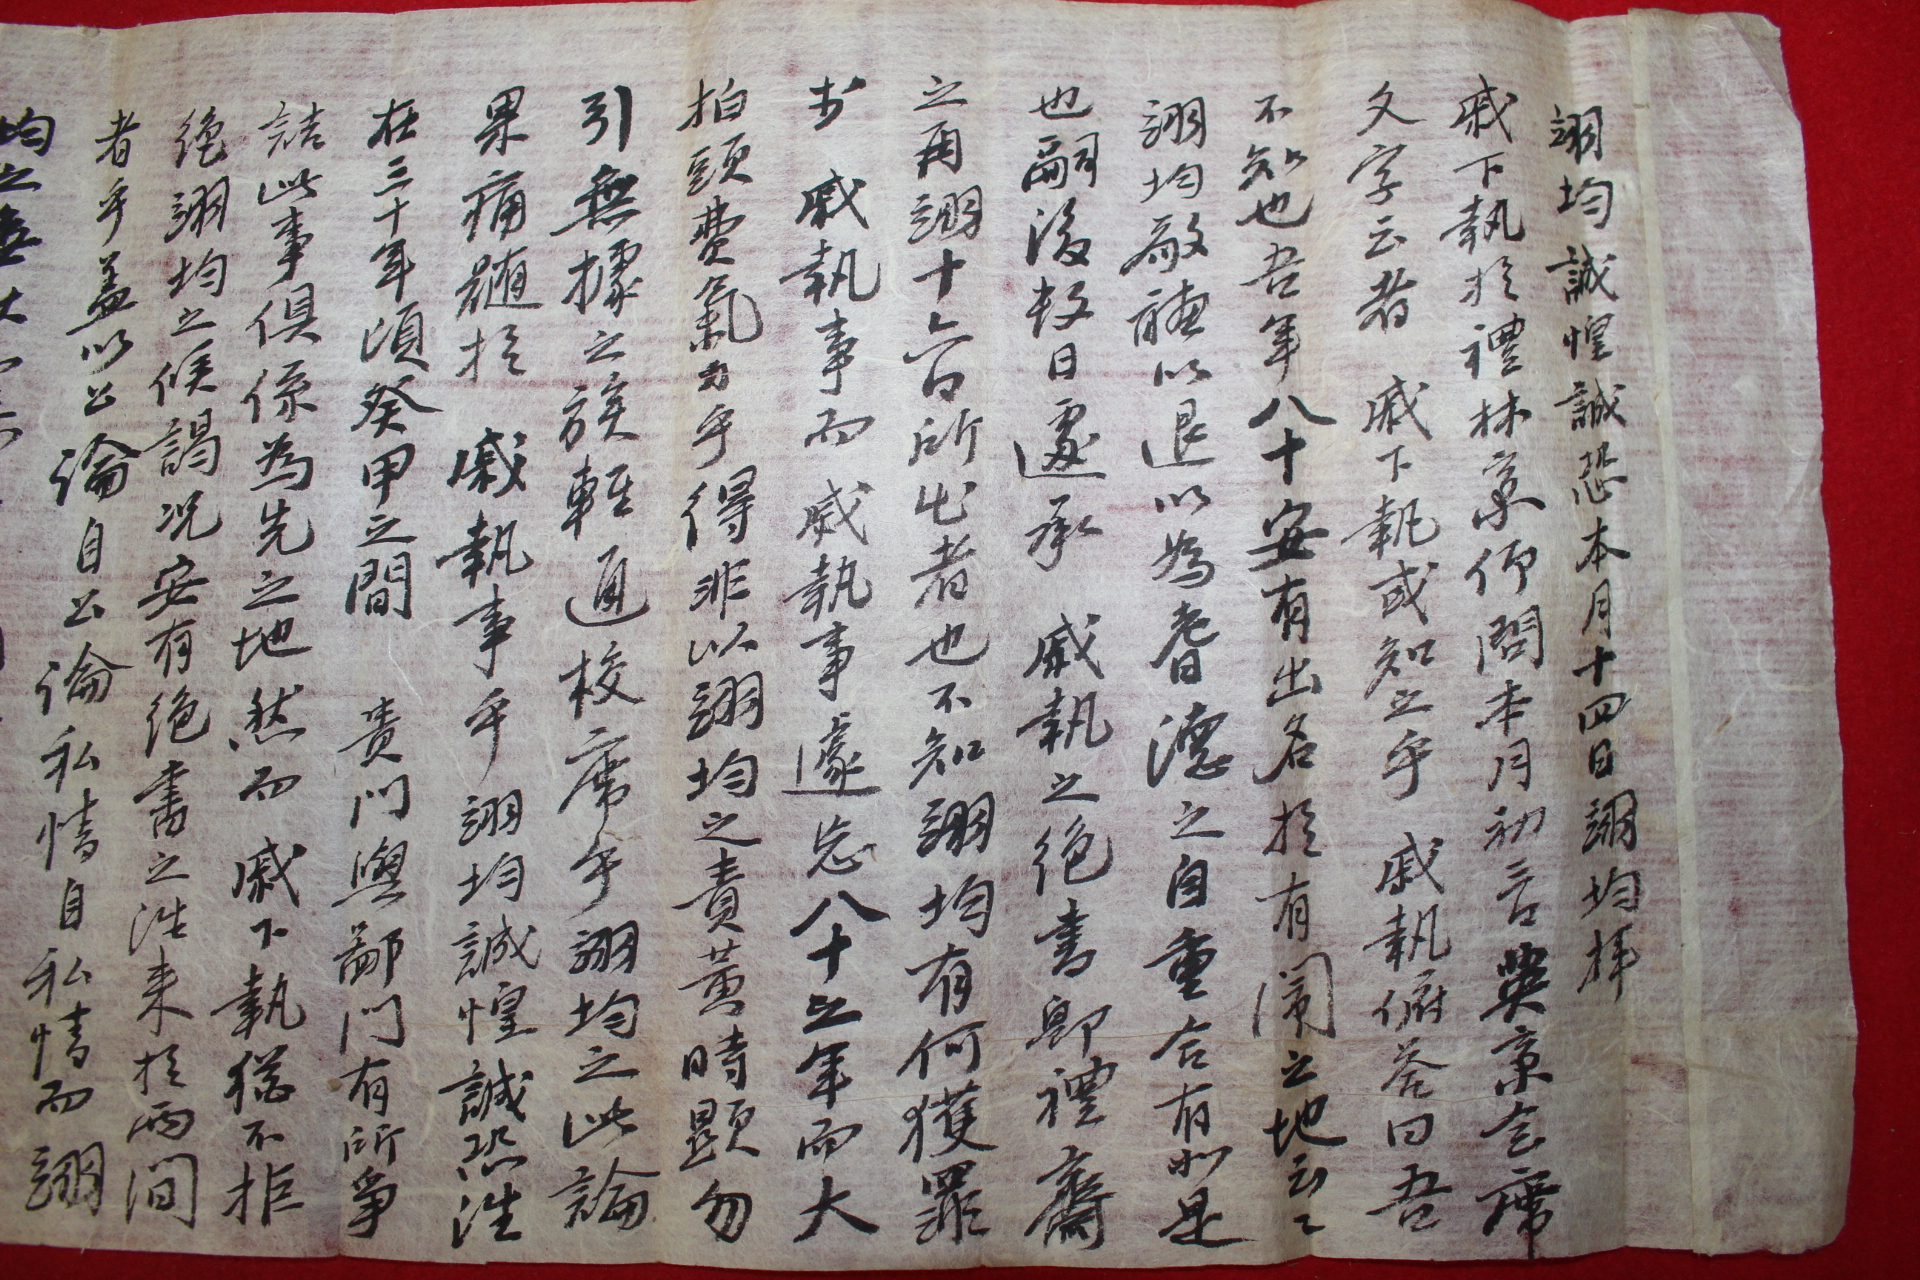 翊均誠惶誠恐本月十四日翊均拜
戚下執於禮林京仰問本月初言與京會席
文字云者 戚下執或知之乎 戚執俯答曰吾
不知也吾年八十安有出名於有閙之地云云
翊均敬聽以退以為耆德之自重合有如是
也嗣後数日遽承 戚執之絶書即禮齋
之再翊十台所出者也不知翊均有何獲罪
於 戚執事而 戚執事遽忘八十之年而大
拍頭費氣力乎得非以翊均之責黃時顯勿
引無據之族輕通校席乎翊均之此論
果痛髄於 戚執事乎翊均誠惶誠恐往
在三十年頃癸甲之間 貴門與鄙門有所爭
詰此事俱係為先之地然而 戚下執猶不拒
絶翊均之候謁况安有絶書之往来於两間
者乎盖以公論自公論私情自私情而翊
均之